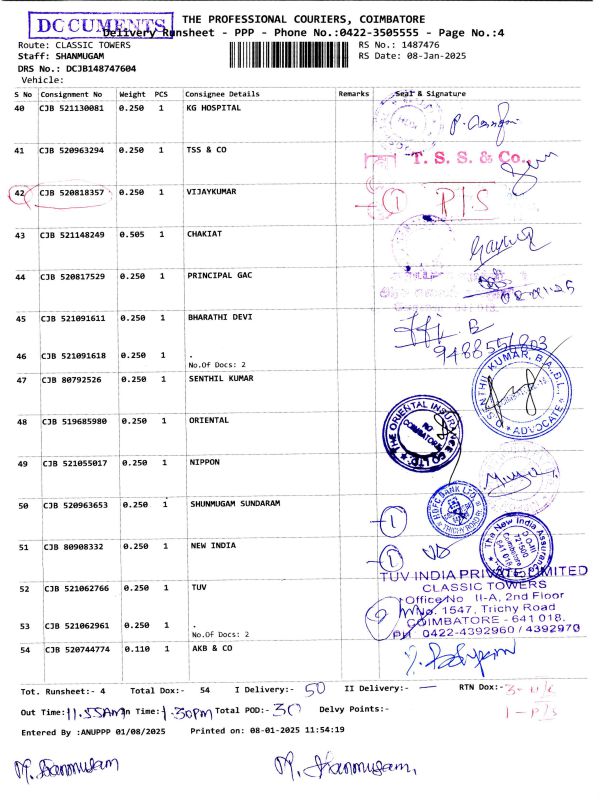 DOCUMENTS
THE PROFESSIONAL COURIERS, COIMBATORE
Delivery Runsheet - PPP - Phone No.:0422-3505555 - Page No.:4
Route: CLASSIC TOWERS
RS No.: 1487476
Staff: SHANMUGAM
RS Date: 08-Jan-2025
DRS No.: DCJB148747604
Vehicle:
S No Consignment No Weight PCS Consignee Details Remarks Seal & Signature
40 CJB 521130081 0.250 1 KG HOSPITAL
41 CJB 520963294 0.250 1 TSS & CO
T. S. S. & Co.,
42 CJB 520818357 0.250 1 VIJAYKUMAR
1 P/S
43 CJB 521148249 0.505 1 CHAKIAT
44 CJB 520817529 0.250 1 PRINCIPAL GAC
45 CJB 521091611 0.250 1 BHARATHI DEVI
46 CJB 521091618 0.250 1 .
No.Of Docs: 2
47 CJB 80792526 0.250 1 SENTHIL KUMAR
SENTHIL KUMAR, B.A.,B.L.,
ADVOCATE
48 CJB 519685980 0.250 1 ORIENTAL
THE ORIENTAL INSURANCE CO. LTD.
COIMBATORE
49 CJB 521055017 0.250 1 NIPPON
50 CJB 520963653 0.250 1 SHUNMUGAM SUNDARAM
HDFC BANK LTD.
1
51 CJB 80908332 0.250 1 NEW INDIA
1
The New India Assurance
721500
Coimbatore
641 018
52 CJB 521062766 0.250 1 TUV
TUV INDIA PRIVATE LIMITED
CLASSIC TOWERS
Office No II-A, 2nd Floor
No. 1547, Trichy Road
COIMBATORE - 641 018.
PH 0422-4392960 / 4392970
53 CJB 521062961 0.250 1 .
No.Of Docs: 2
54 CJB 520744774 0.110 1 AKB & CO
Tot. Runsheet:- 4 Total Dox:- 54 I Delivery:- 50 II Delivery:- — RTN Dox:- 3-
1-P/S
Out Time: 11.55AM In Time: 1.30PM Total POD:- 30 Delvy Points:-
Entered By :ANUPPP 01/08/2025 Printed on: 08-01-2025 11:54:19
M. Shanmugam M. Shanmugam,